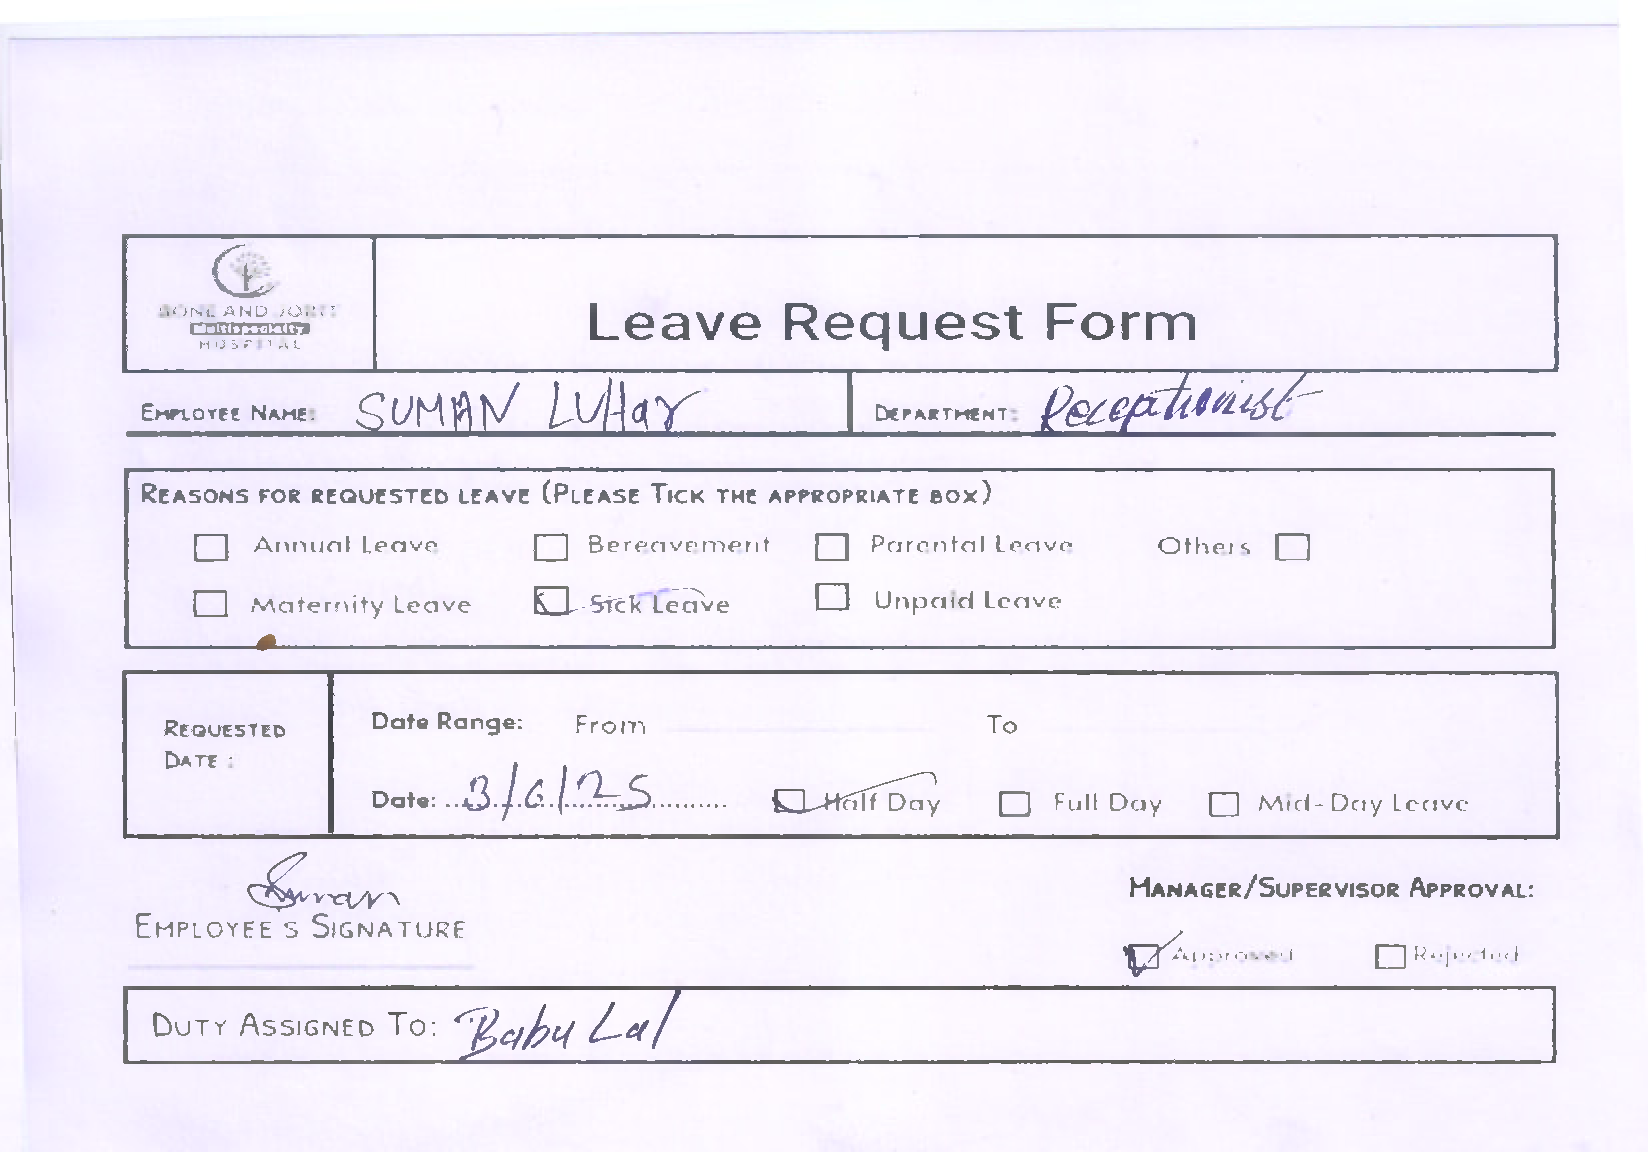 BONE AND JOINT
Multispeciality
HOSPITAL
Leave Request Form
EMPLOYEE NAME: SUMAN LUHar
DEPARTMENT: Receptionist
REASONS FOR REQUESTED LEAVE (PLEASE TICK THE APPROPRIATE BOX)
Annual Leave Bereavement Parental Leave Others
Maternity Leave Sick Leave Unpaid Leave
REQUESTED DATE :
Date Range: From To
Date: 3/6/25 Half Day Full Day Mid-Day Leave
Suman
EMPLOYEE'S SIGNATURE
MANAGER/SUPERVISOR APPROVAL:
Approved Rejected
DUTY ASSIGNED TO: Babu Lal